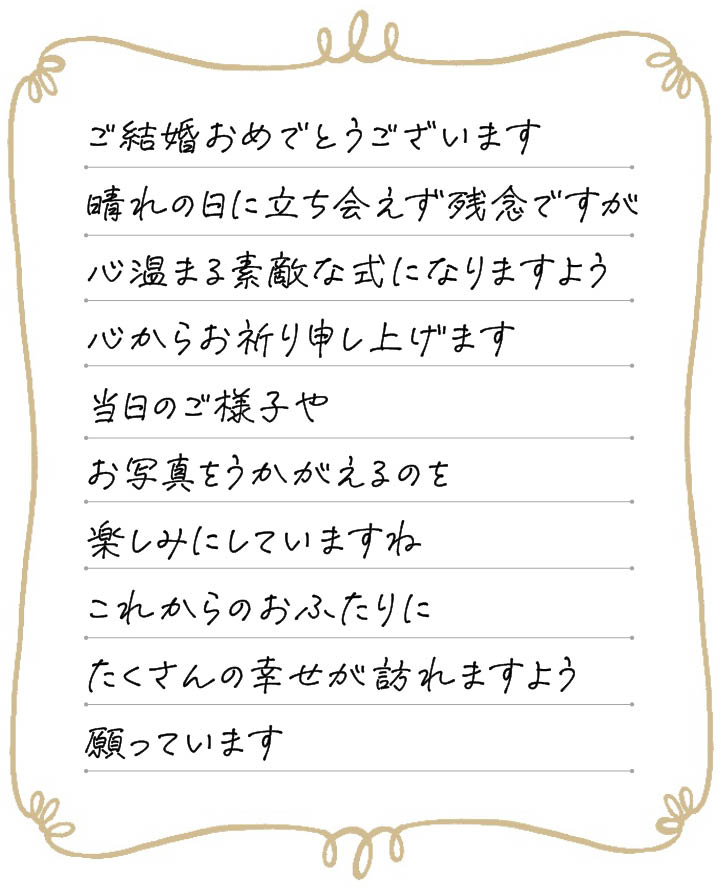 ご結婚おめでとうございます
晴れの日に立ち会えず残念ですが
心温まる素敵な式になりますよう
心からお祈り申し上げます
当日のご様子や
お写真をうかがえるのを
楽しみにしていますね
これからのおふたりに
たくさんの幸せが訪れますよう
願っています